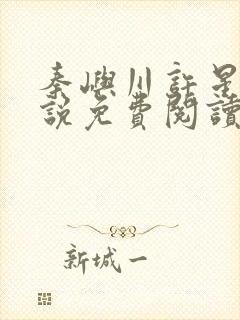 秦嶼川許是
說免費閱讀
新城一